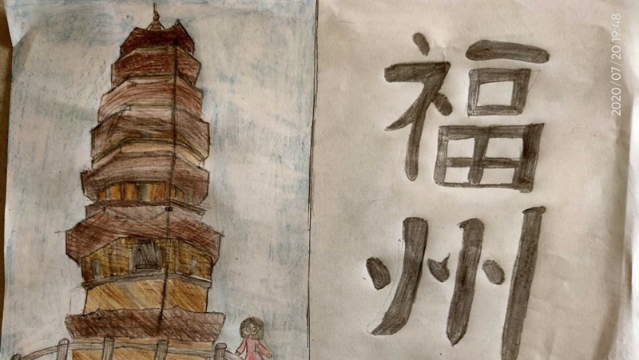 福
州
2020/07/20 19:48